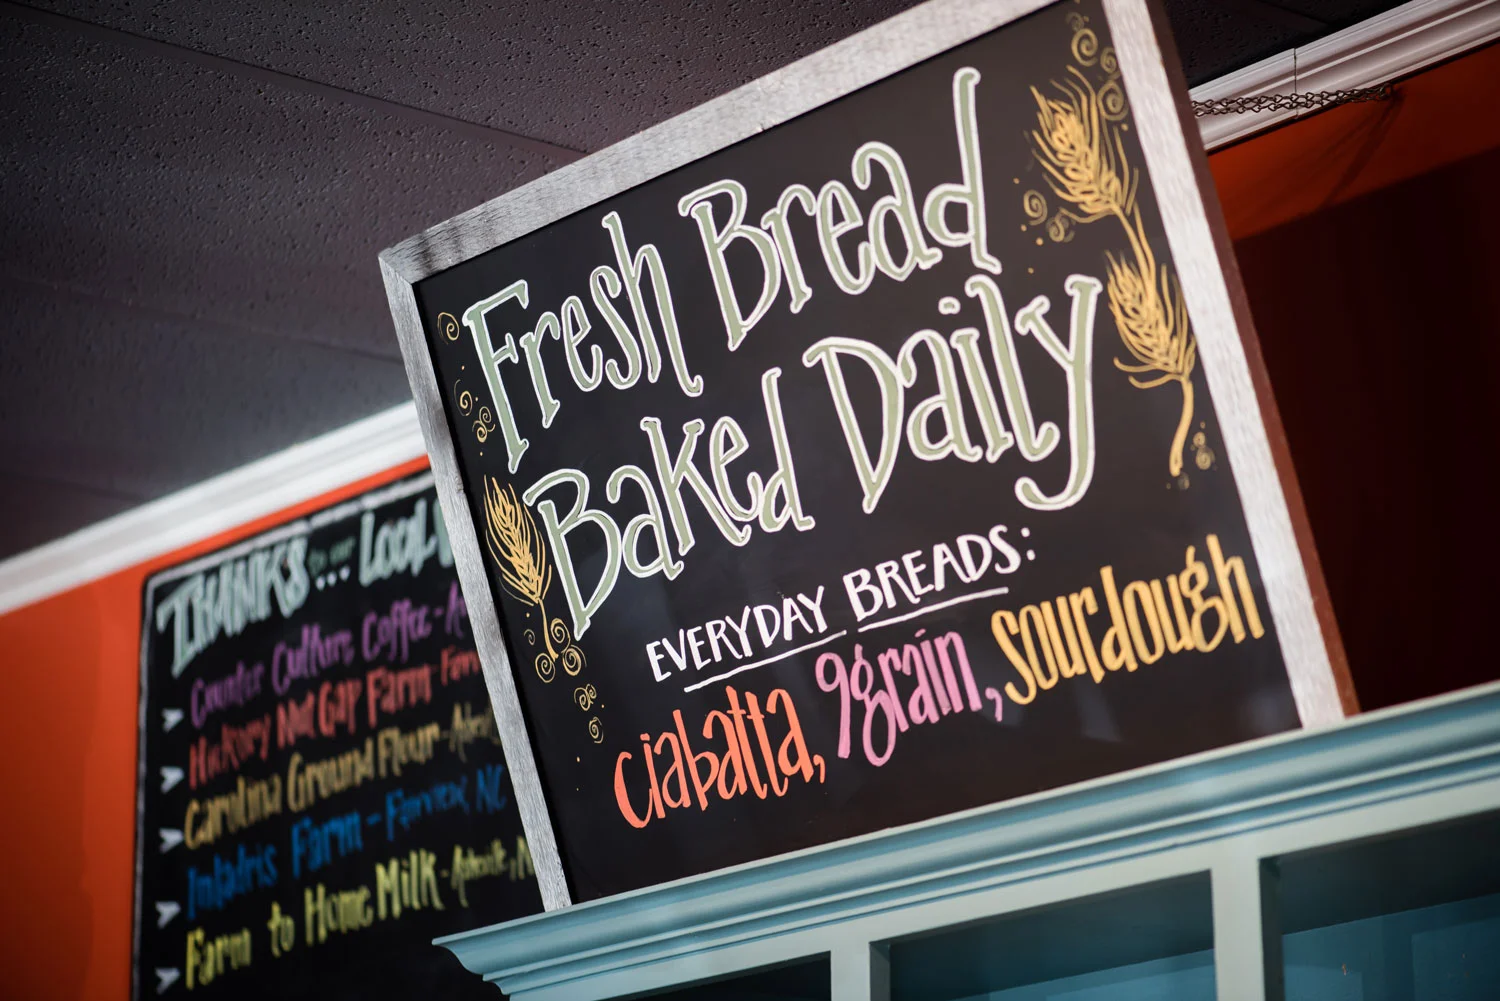 Fresh Bread
Baked Daily
EVERYDAY BREADS:
ciabatta, 9grain, sourdough
THANKS to our ... LOCAL
Counter Culture Coffee -
Hickory Nut Gap Farm -
Carolina Ground Flour -
Farm - Fairview, NC
Farm to Home Milk - Asheville,